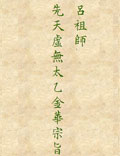 呂祖師
先天虛無太乙金華宗旨